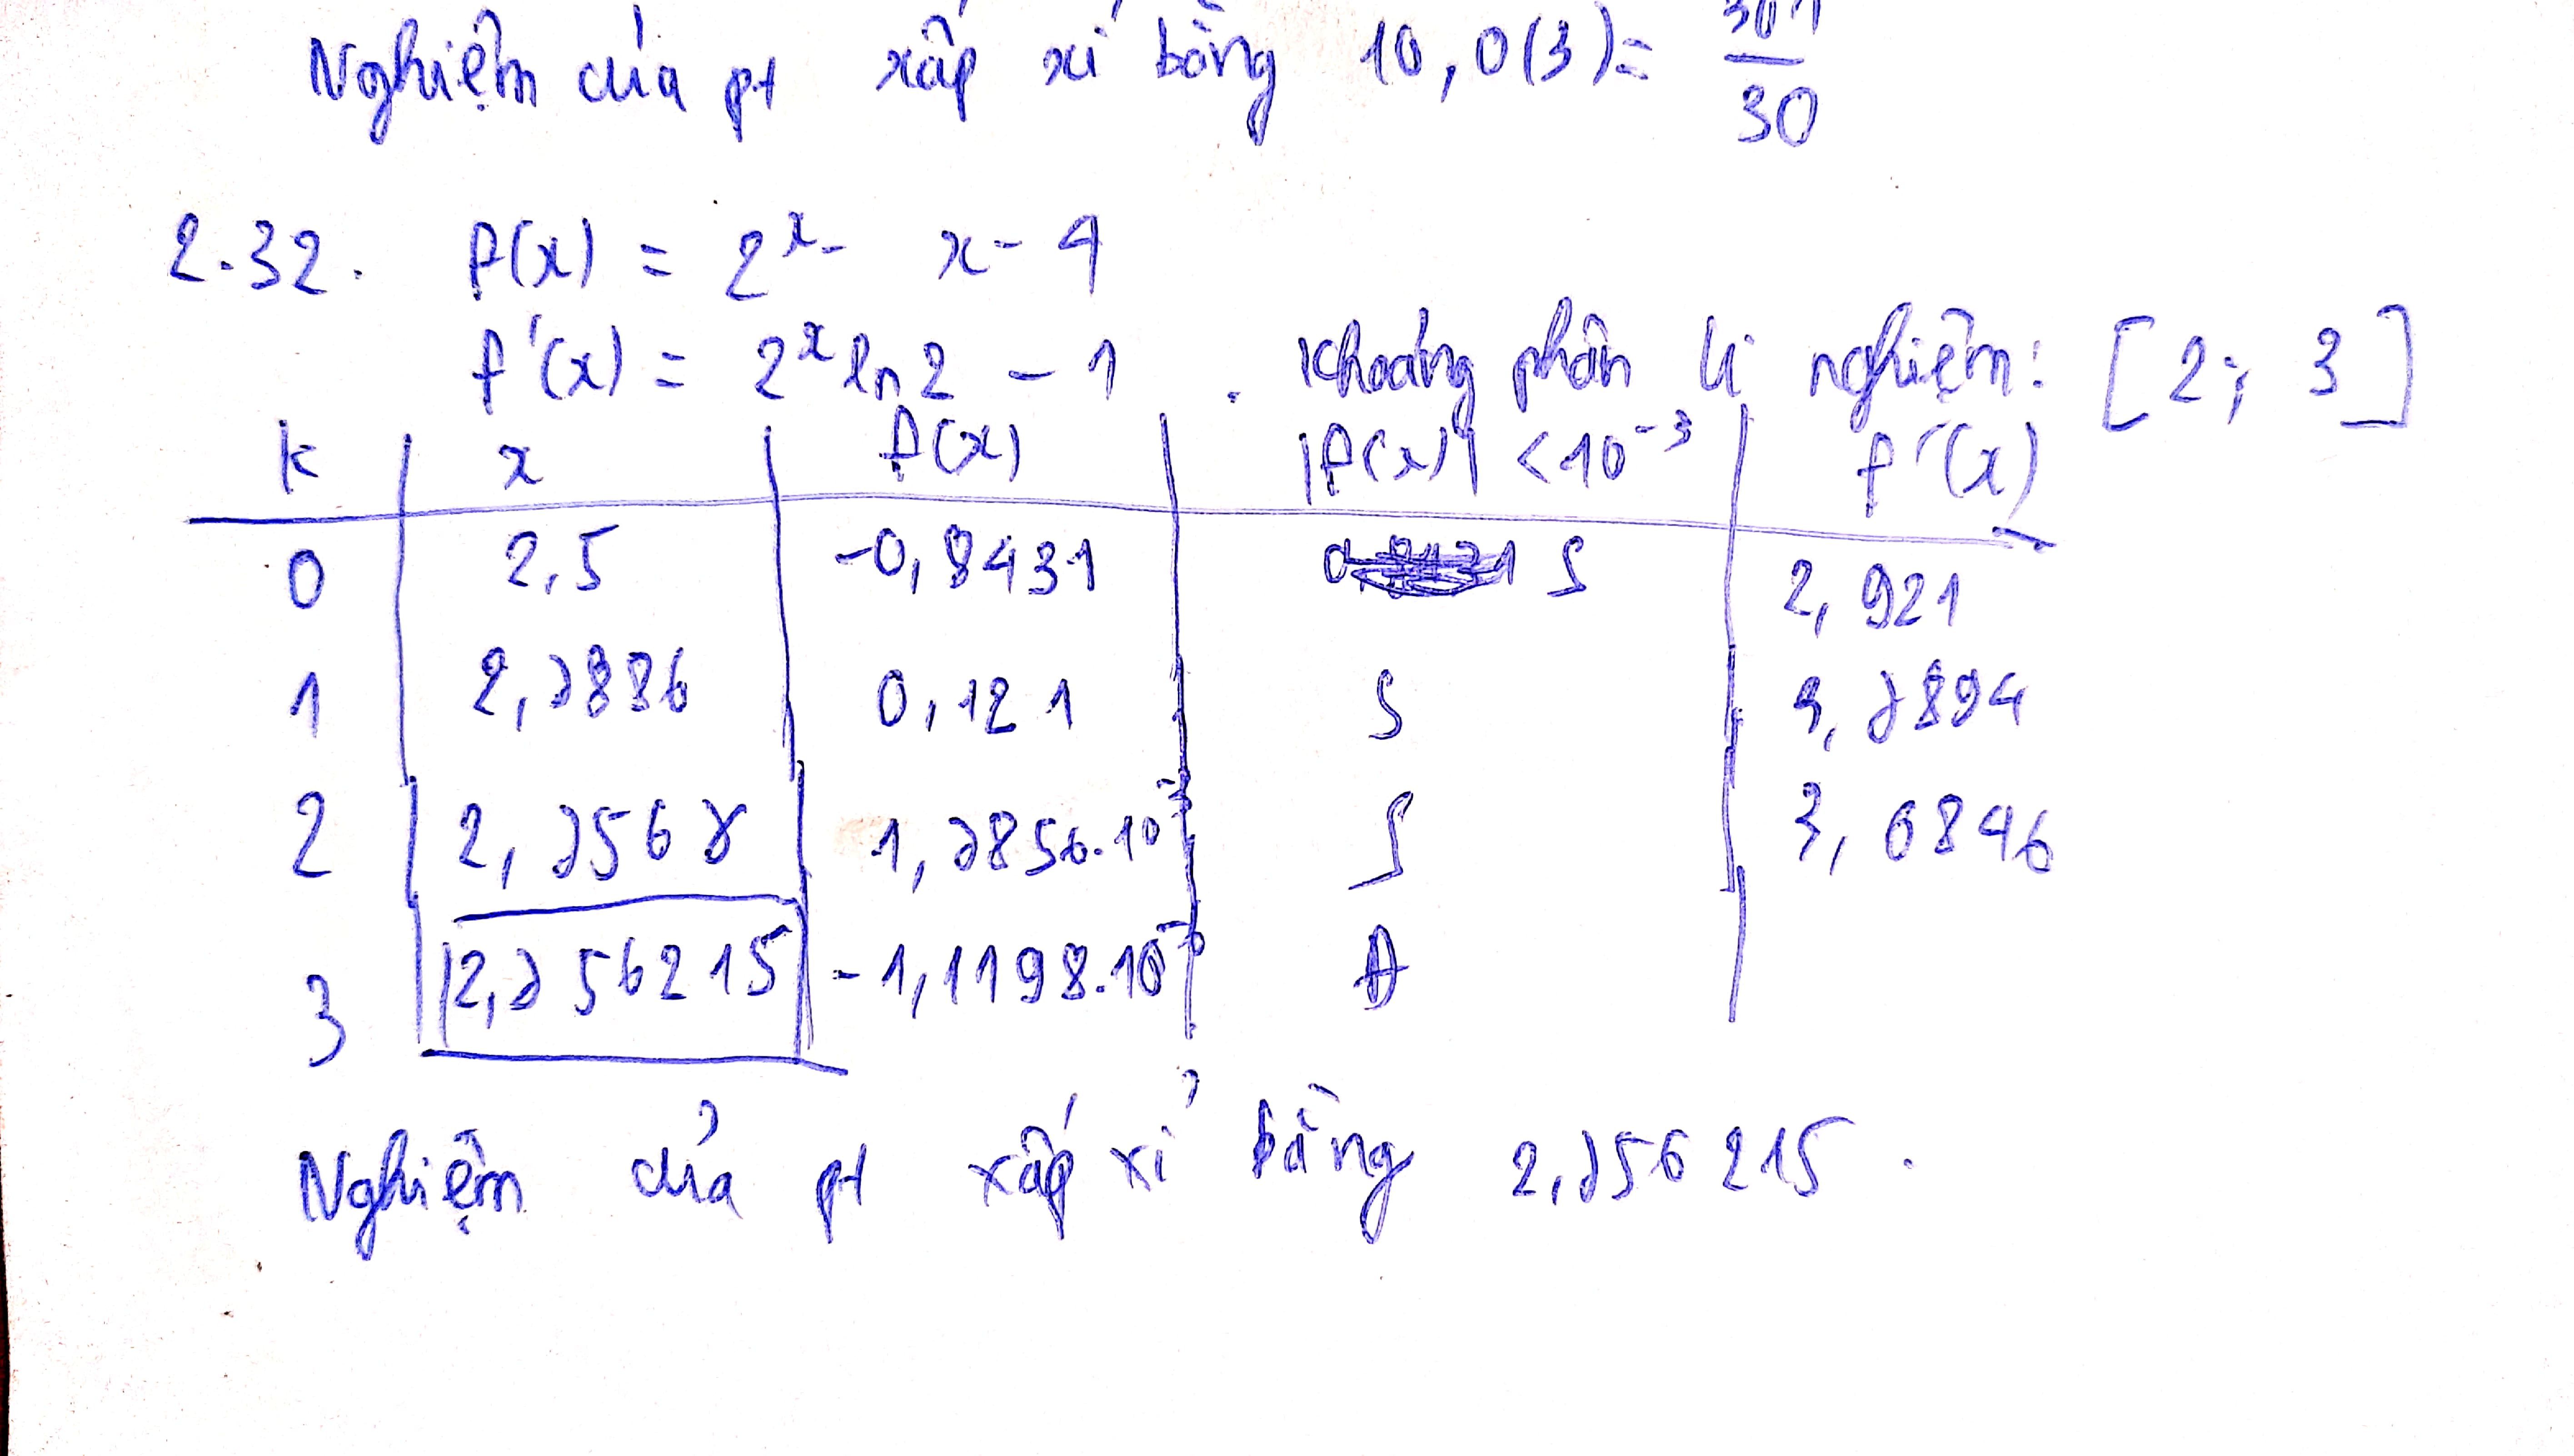 Nghiệm của pt xấp xỉ bằng 10,0(3) = 301/30
2.32. f(x) = 2^x - x - 4
f'(x) = 2^x ln2 - 1 . Khoảng phân li nghiệm: [2; 3]
k | x | f(x) | |f(x)| < 10^-3 | f'(x)
0 | 2,5 | -0,8431 | S | 2,921
1 | 2,7886 | 0,121 | S | 3,7894
2 | 2,7567 | 1,7856.10^-3 | S | 3,6846
3 | 2,756215 | -1,1198.10 | Đ
Nghiệm của pt xấp xỉ bằng 2,756215 .